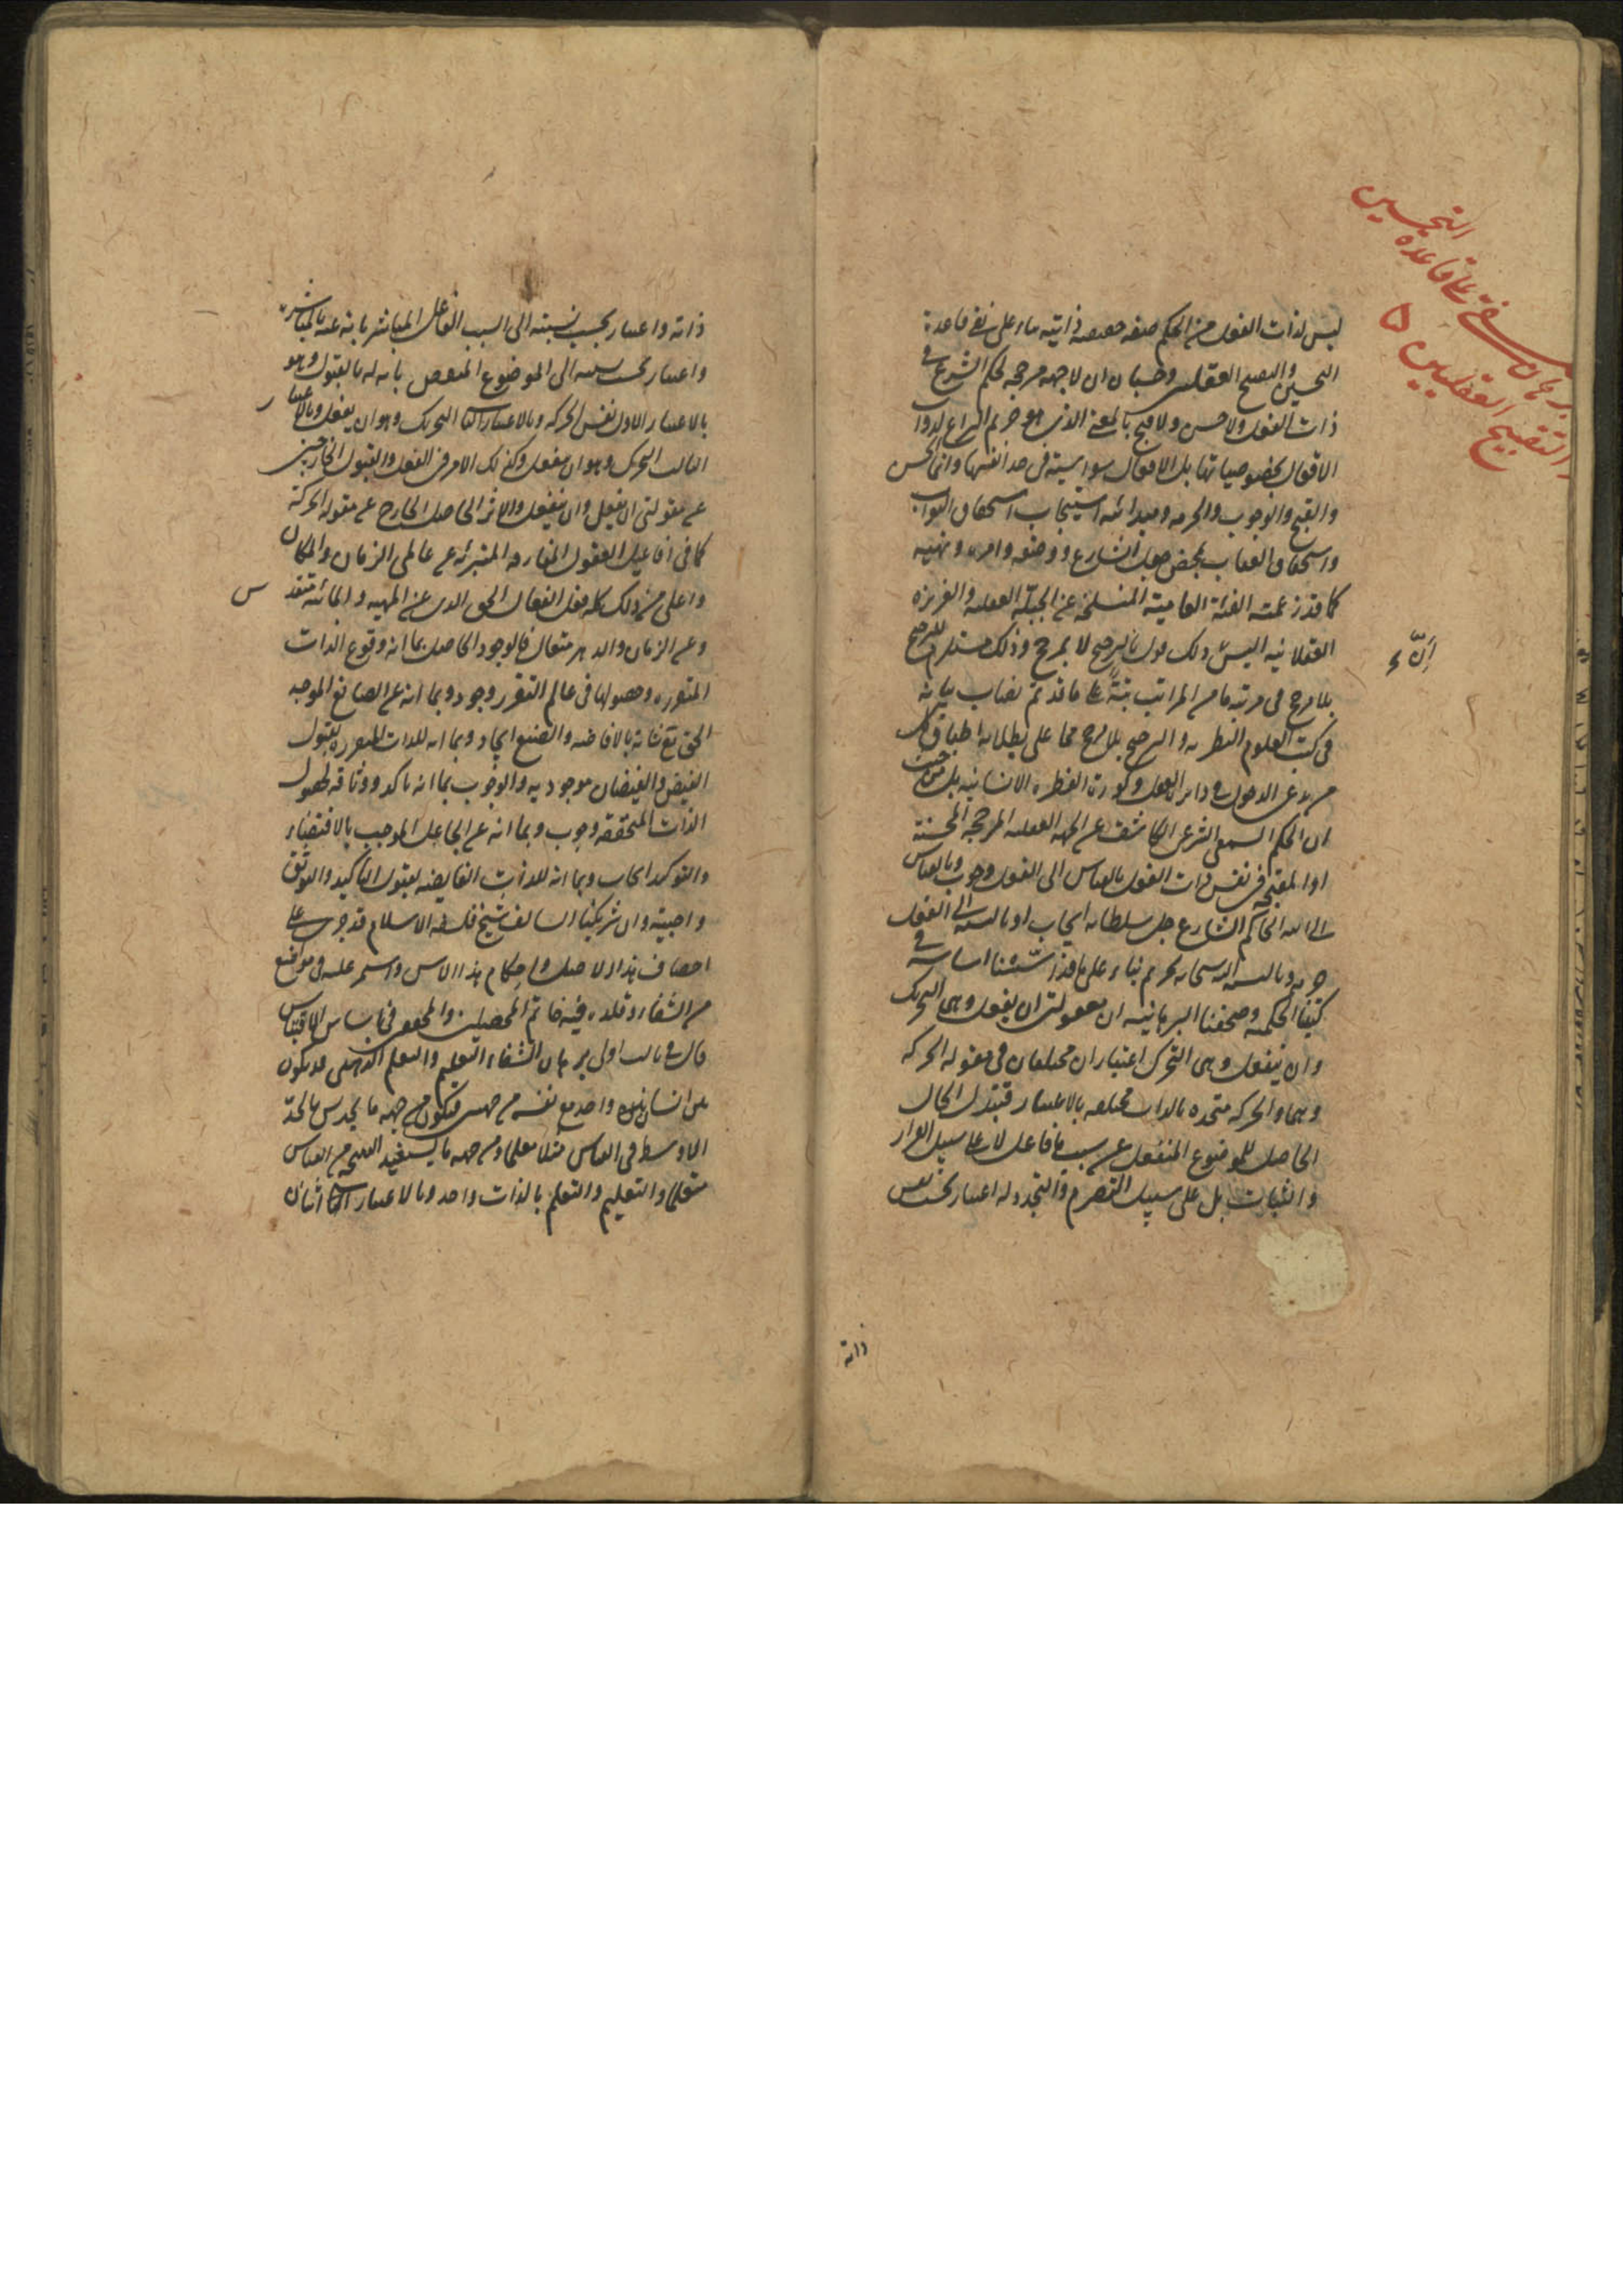 برهان فلسفي على قاعدة
التحسين
والتقبيح العقليين
ليس لذات الفعل من الحكم صفة حقيقية ذاتية بناء على نفي قاعدة
التحسين والتقبيح العقليين وحسبان ان لا جهة مرجحة لحكم الشرع في
ذات الفعل ولا حسن ولا قبح بالمعنى الذي هو حريم النزاع لذوات
الافعال بخصوصياتها بل الافعال سواسية في حد انفسها وانما الحسن
والقبح والوجوب والحرمة ومبدائية استيجاب استحقاق الثواب
واستحقاق العقاب بمحض جعل الشارع ووضعه وامره ونهيه
كما قد زعمته الفئة العامية المنسلخة عن الجبلة العقلية والغريزة
العقلانية اليس ذلك قول بالترجيح لا بمرجح وذلك مستلزم للترجح
انّ
بلا مرجح في مرتبة ما من المراتب بتة على ما قد تم نصاب بيانه
في كتب العلوم النظرية والترجح بلا مرجح مما على بطلانه اطباق كل
من يدعي الدخول في دائرة العقل وكورة الفطرة الانسانية بل من حيث
ان الحكم السمعي الشرعي الكاشف عن الجهة العقلية المرجحة المحسنة
او المقبحة في نفس ذات الفعل بالقياس الى الفعل وجوب وبالقياس
الى الله الحاكم الشارع جل سلطانه ايجاب او بالنسبة الى الفعل
حرمة وبالنسبة اليه سبحانه تحريم بناء على ما قد اسّسنا اساسه في
كتبنا الحكمية وصحفنا البرهانية ان مقولتي ان يفعل وهي التحريك
وان ينفعل وهي التحرك اعتباران مختلفان في مقولة الحركة
وهما والحركة متحدة بالذات مختلفة بالاعتبار فتبدل الحال
الحاصل للموضوع المنفعل عن سبب ما فاعل لا على سبيل القرار
والثبات بل على سبيل التصرم والتجدد له اعتبار بحسب نفس
ذاته
ذاته واعتبار بحسب نسبته الى السبب الفاعل المباشر بانه عنه بالمباشرة
واعتبار بحسب نسبته الى الموضوع المنفعل بانه له بالقبول وهو
بالاعتبار الاول نفس الحركة وبالاعتبار الثاني التحريك وهو ان يفعل وبالاعتبار
الثالث التحرك وهو ان ينفعل وكذلك الامر في الفعل والقبول الخارجين
عن مقولتي ان يفعل وان ينفعل والاثر الحاصل الخارج عن مقولة الحركة
كما في افاعيل العقول المفارقة المتبرئة عن عالمي الزمان والمكان
واعلى من ذلك كله فعل الفعال الحق الذي عن المهية والمائية متقدس
وعن الزمان والدهر متعال فالوجود الحاصل بما انه وقوع الذات
المتقررة وحصولها في عالم التقرر وجود وبما انه عن الصانع الموجد
الحق تع شانه بالافاضة والصنع ايجاد وبما انه للذات المتقررة بقبول
الفيض والفيضان موجودية والوجوب بما انه تاكد ووثاقة لحصول
الذات المتحققة وجوب وبما انه عن الجاعل الموجب بالاقتضاء
والتوكيد ايجاب وبما انه للذات الفايضة بقبول التاكيد والتوثق
واجبية وان شريكنا السالف شيخ فلسفة الاسلام قد جرى على
احصاف هذا الاصل واحكام هذا الاس واستمر عليه في مواضع
من الشفاء وقلده فيه خاتم المحصلين والمحقق في اساس الاقتباس
قال في ثالث اولى برهان الشفاء التعليم والتعلم الذهني قد يكون
بين انسانين وواحد مع نفسه من جهتين فيكون من جهة ما يحدس بالحد
الاوسط في القياس مثلا معلما ومن جهة ما يستفيد النتيجة من القياس
متعلما والتعليم والتعلم بالذات واحد وبالاعتبار اثنان